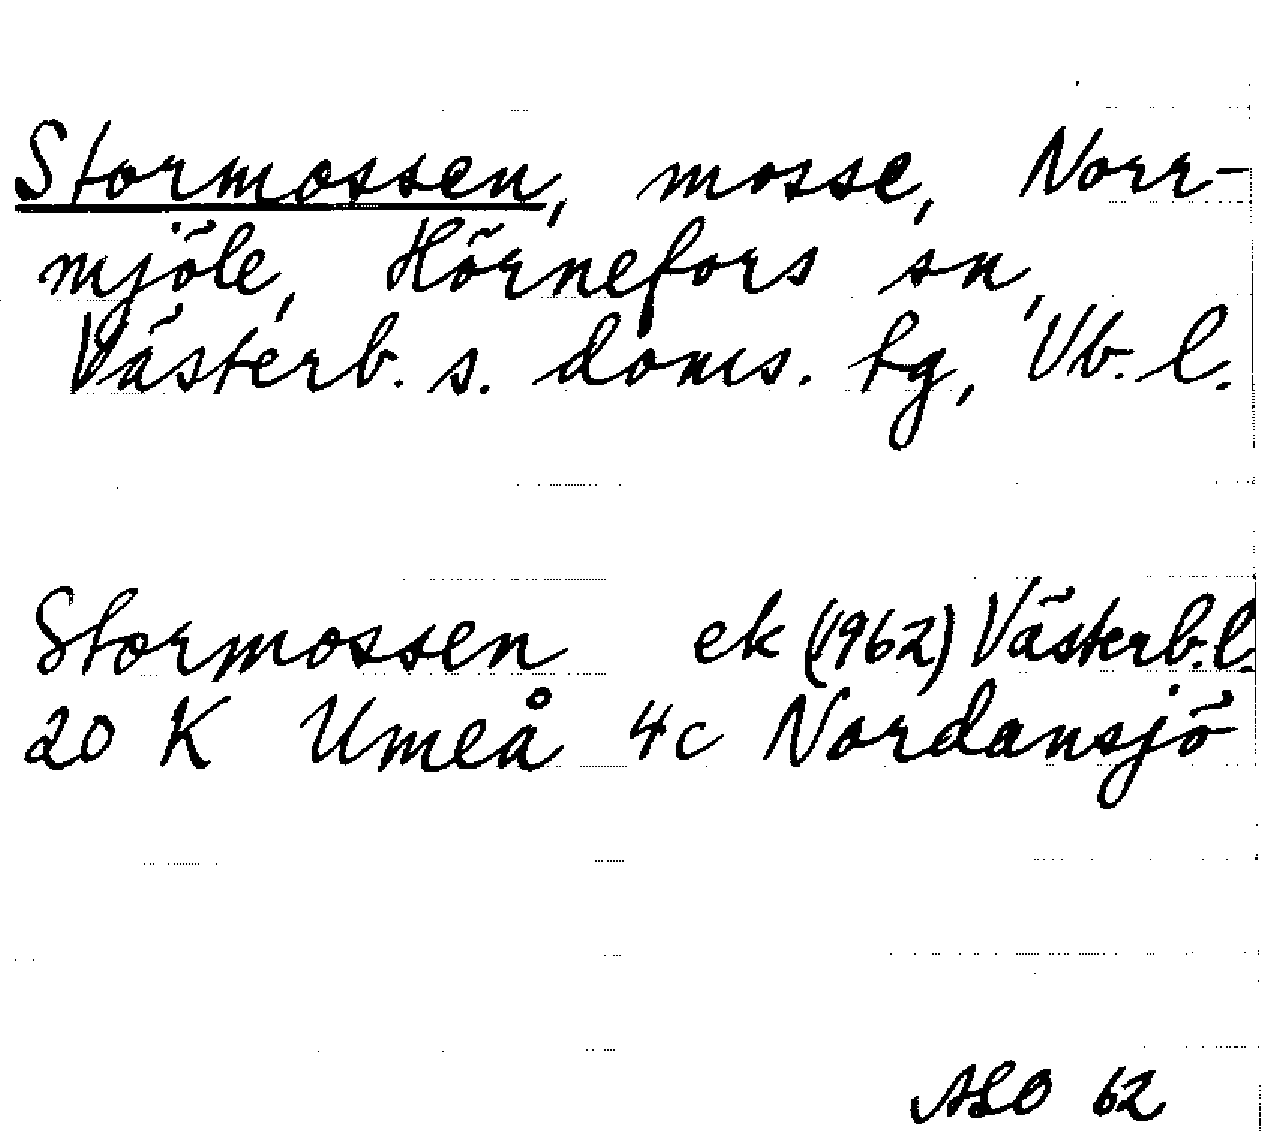 Stormossen, mosse, Norr-
mjöle, Hörnefors sn,
Västerb. s. doms. tg, Vb. l.
Stormossen ek (1962) Västerb. l.
20 K Umeå 4c Nordansjö
ALO 62